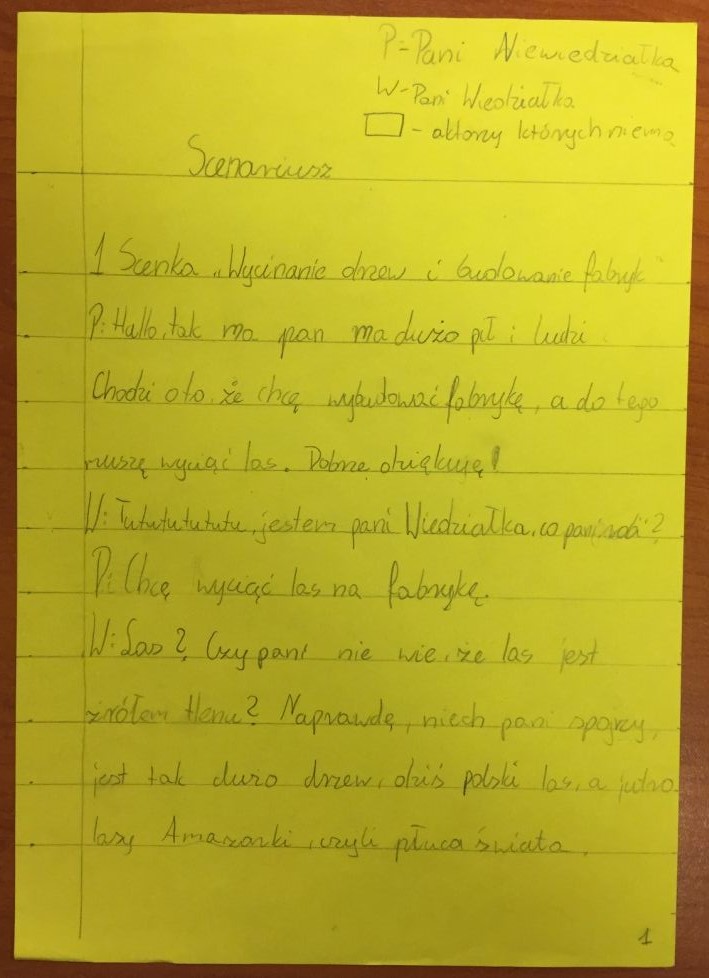 P-Pani Niewiedziałka
W-Pani Wiedziałka
- aktorzy których niema
Scenariusz
1 Scenka „Wycinanie drzew i budowanie fabryk"
P: Hallo, tak ma pan ma dużo pił i ludzi.
Chodzi oto, że chcę wybudować fabrykę, a do tego
muszę wyciąć las. Dobrze dziękuję!
W: Tututututu, jestem pani Wiedziałka, co pani robi"?
P: Chcę wyciąć las na fabrykę.
W: Las? Czy pani nie wie, że las jest
źrółem tlenu? Naprawdę, niech pani spojrzy,
jest tak dużo drzew, dziś polski las, a jutro
lasy Amazonki, czyli płuca świata.
1